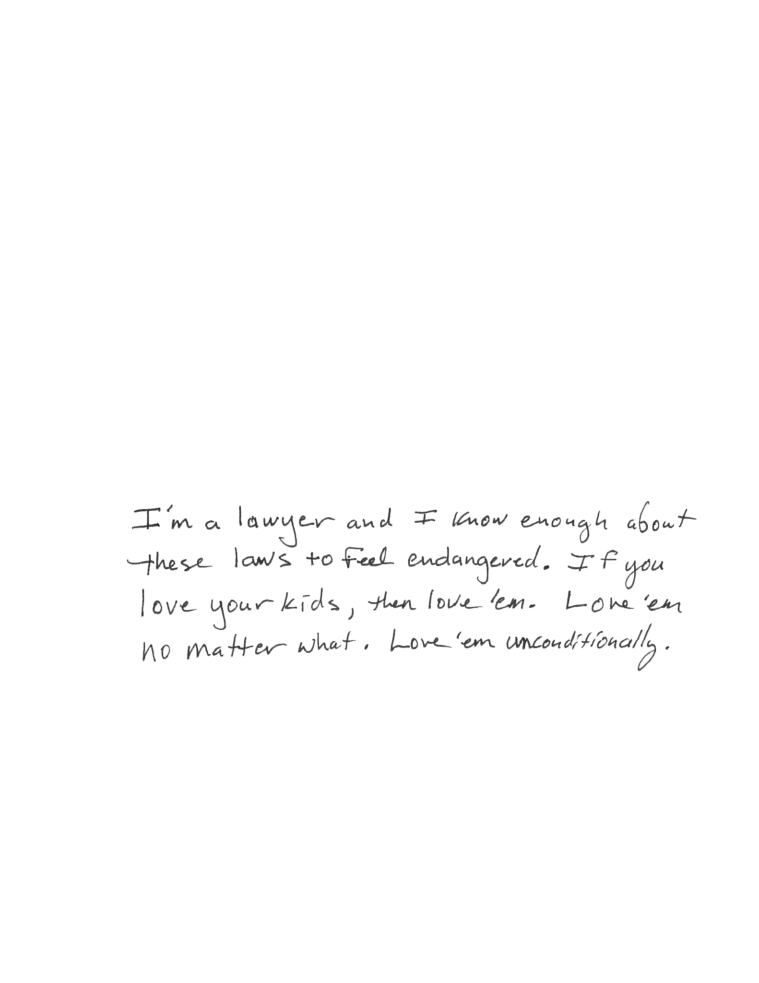 I'm a lawyer and I know enough about
these laws to feel endangered. If you
love your kids, then love 'em. Love 'em
no matter what. Love 'em unconditionally.